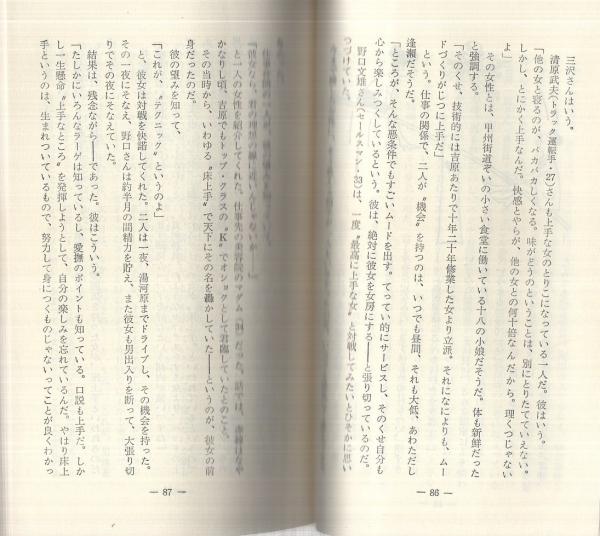 三沢さんはいう。
清原武夫(トラック運転手・27)さんも上手な女のとりこになっている一人だ。彼はいう。
「他の女と寝るのが、バカバカしくなる。味がどうのということは、別にとりたてていえない。
しかし、とにかく上手なんだ。快感とやらが、他の女との何十倍なんだから。理くつじゃない
よ」
その女性とは、甲州街道ぞいの小さい食堂に働いている十八の小娘だそうだ。体も新鮮だった
と強調する。
「そのくせ、技術的には吉原あたりで十年二十年修業した女より立派。それになによりも、ムー
ドづくりがじつに上手だ」
という。仕事の関係で、二人が〝機会〟を持つのは、いつでも昼間、それも大低、あわただし
逢瀬だそうだ。
「ところが、そんな悪条件でもすごいムードを出す。てってい的にサービスし、そのくせ自分も
心から楽しみつくしているという。彼は、絶対に彼女を女房にする――と張り切っているのだ。
野口文雄さん(セールスマン・33)は、一度〝最高に上手な女〟と対戦してみたいとひそかに思い
つづけていた。
― 86 ―
と一人の女性を紹介してくれた。仕事先の美容院のマダム(34)だった。話では、
かなりし頃、吉原でもトップ・クラスの〝K〟でオショクとして君臨していたとのこと。
その当時から、いわゆる〝床上手〟で天下にその名を轟かしていた――というのが、彼女の前
身だったのだ。
彼の望みを知って、
「これが、〝テクニック〟というのよ」
と、彼女は対戦を快諾してくれた。二人は一夜、湯河原までドライブし、その機会を持った。
その一夜にそなえ、野口さんは約半月の間精力を貯え、また彼女も男出入りを断って、大張り切
りでその夜にそなえていた。
結果は、残念ながら――であった。彼はこういう。
「たしかにいろんなラーゲは知っているし、愛撫のポイントも知っている。口説も上手だ。しか
し一生懸命〝上手なところ〟を発揮しようとして、自分の楽しみを忘れているんだ。やはり床上
手というのは、生まれついているもので、努力して身につくものじゃないってことが良くわかっ
― 87 ―